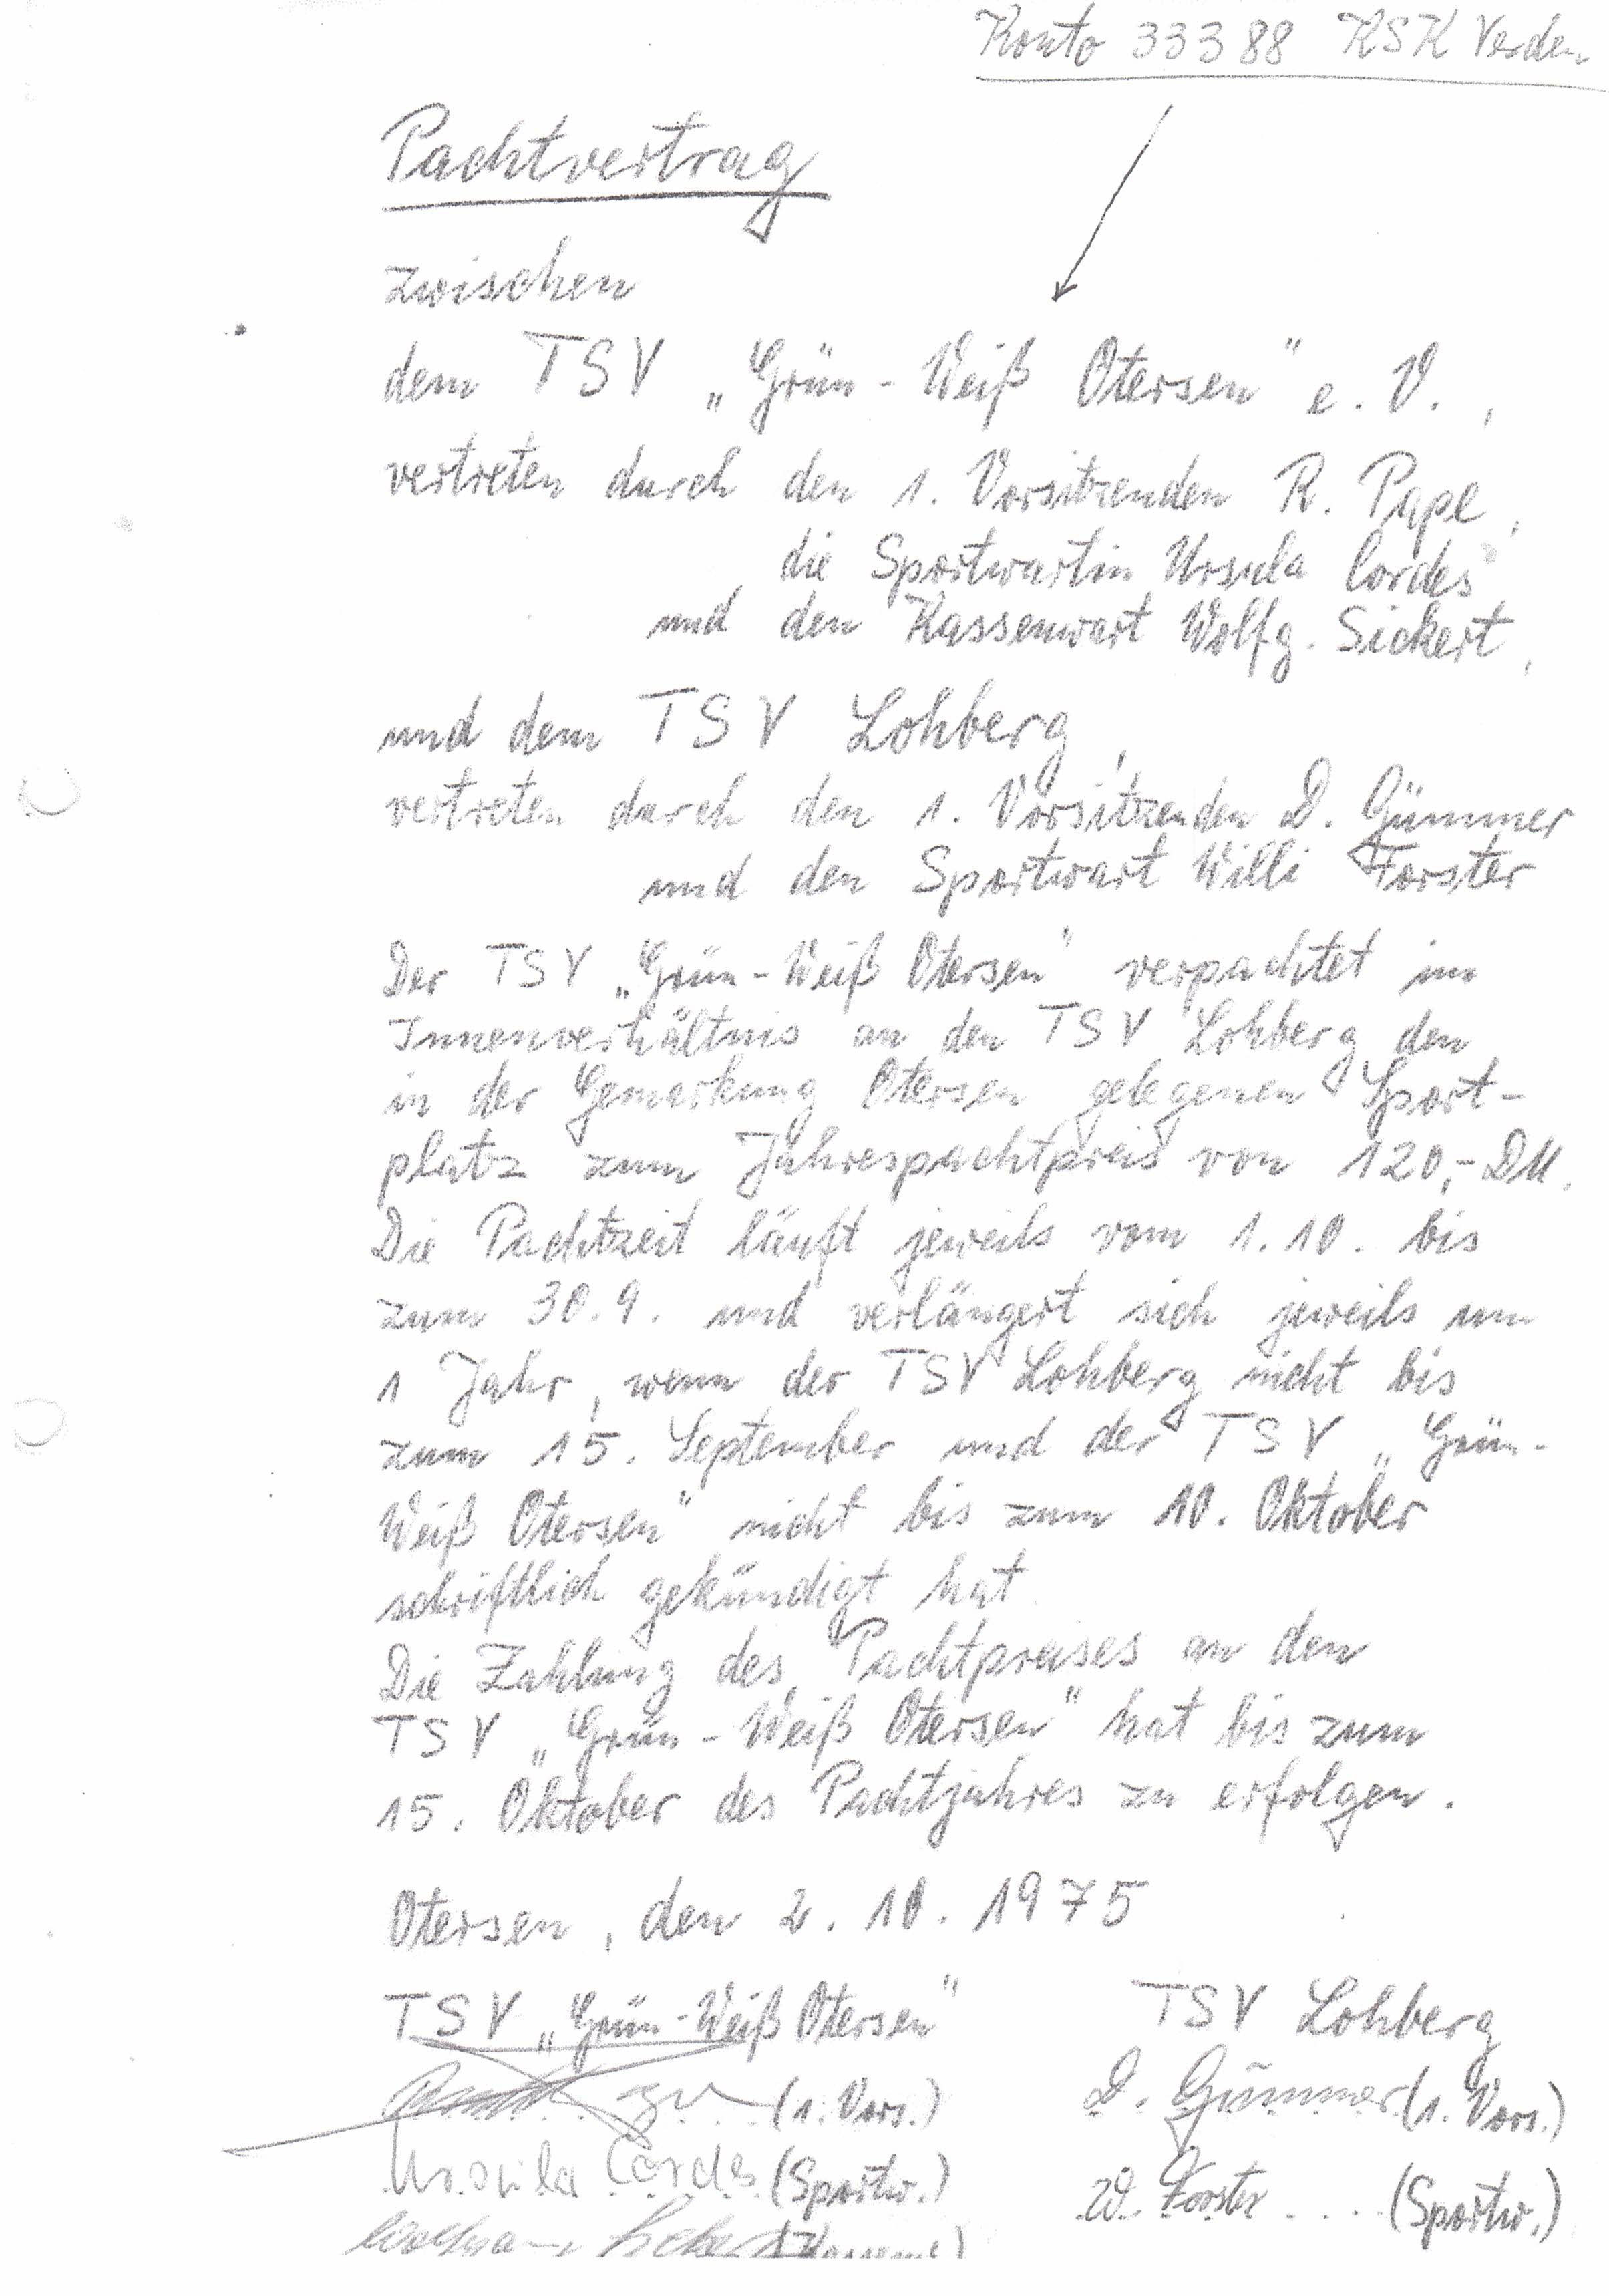 Konto 33388 KSK Verden
Pachtvertrag
zwischen
dem TSV „Grün-Weiß Otersen" e. V.,
vertreten durch den 1. Vorsitzenden R. Pape,
die Sportwartin Ursula Cordes
und den Kassenwart Wolfg. Sickert,
und dem TSV Lohberg,
vertreten durch den 1. Vorsitzenden D. Gümmer
und den Sportwart Willi Forster
Der TSV „Grün-Weiß Otersen" verpachtet im
Innenverhältnis an den TSV Lohberg den
in der Gemarkung Otersen gelegenen Sport-
platz zum Jahrespachtpreis von 120,- DM.
Die Pachtzeit läuft jeweils vom 1.10. bis
zum 30.9. und verlängert sich jeweils um
1 Jahr, wenn der TSV Lohberg nicht bis
zum 15. September und der TSV „Grün-
Weiß Otersen" nicht bis zum 10. Oktober
schriftlich gekündigt hat.
Die Zahlung des Pachtpreises an den
TSV „Grün-Weiß Otersen" hat bis zum
15. Oktober des Pachtjahres zu erfolgen.
Otersen, den 2.10.1975
TSV „Grün-Weiß Otersen" TSV Lohberg
(1. Vors.) D. Gümmer (1. Vors.)
Ursula Cordes (Sportw.) W. Forster (Sportw.)